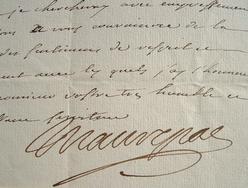 je chercheray avec empressement
vous convaincre de la
des sentimens de respect et
avec les quels j'ay l'honneur
vostre tres humble et
serviteur
Maurepas